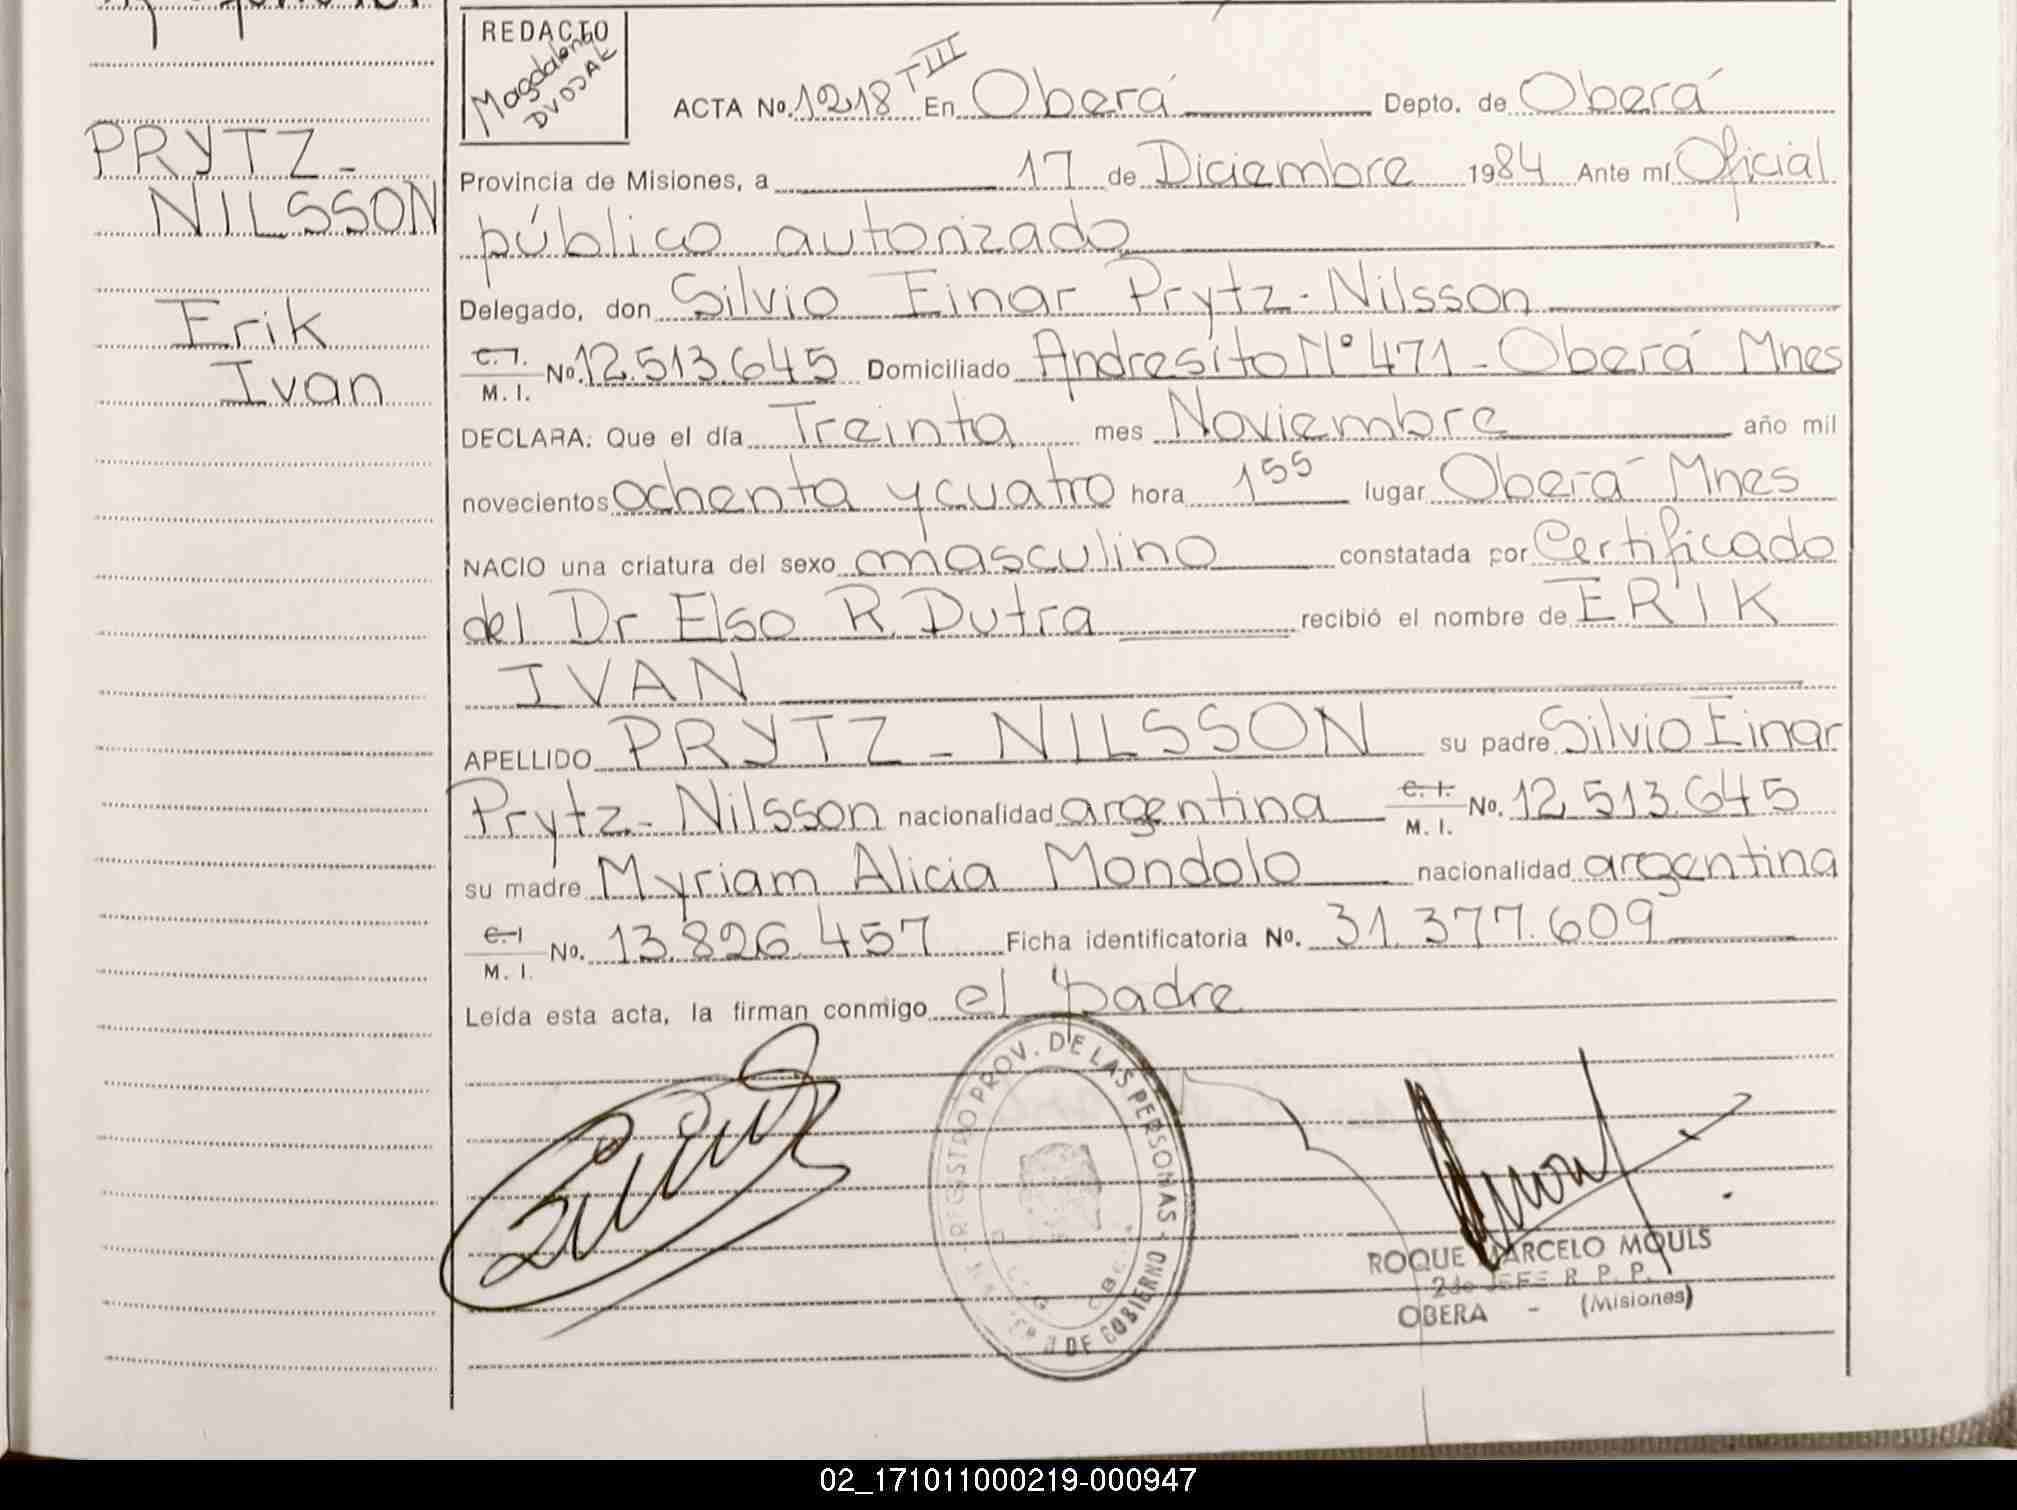 REDACTO
Magdalena
DVOJAK
ACTA No. 1218 TIII En Oberá Depto. de Oberá
PRYTZ-
NILSSON
Erik
Ivan
Provincia de Misiones, a 17 de Diciembre 1984 Ante mí Oficial
público autorizado
Delegado, don Silvio Einar Prytz-Nilsson
C.I.
M. I. No. 12.513.645 Domiciliado Andresito Nº 471 - Oberá Mnes
DECLARA: Que el día Treinta mes Noviembre año mil
novecientos ochenta y cuatro hora 1 55 lugar Oberá Mnes
NACIO una criatura del sexo masculino constatada por Certificado
del Dr Elso R. Dutra recibió el nombre de ERIK
IVAN
APELLIDO PRYTZ - NILSSON su padre Silvio Einar
Prytz-Nilsson nacionalidad argentina C.I. M. I. No. 12.513.645
su madre Myriam Alicia Mondolo nacionalidad argentina
C.I
M. I. No. 13.826.457 Ficha identificatoria No. 31.377.609
Leída esta acta, la firman conmigo el padre
REGISTRO PROV. DE LAS PERSONAS
DE GOBIERNO
ROQUE MARCELO MOULS
2do JEFE R. P. P.
OBERA - (Misiones)
02_171011000219-000947